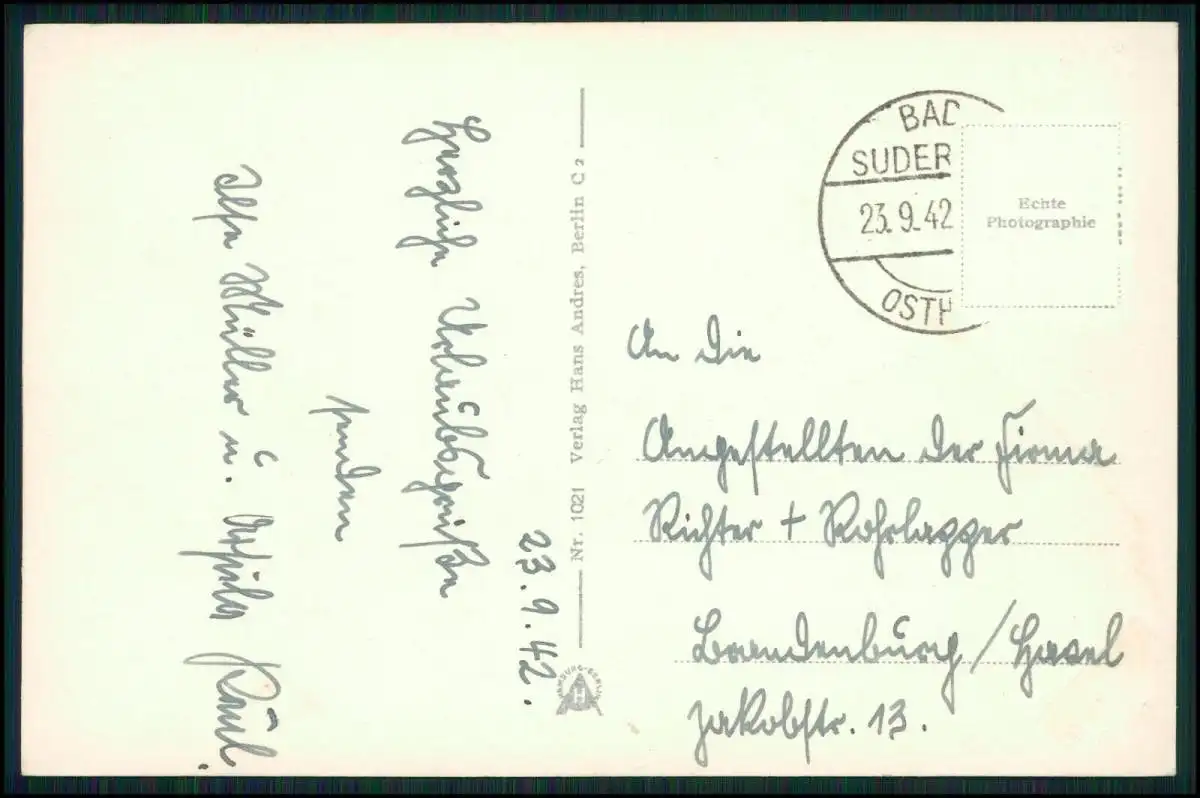 23.9.42.
Herzliche Urlaubsgrüße
senden
Ilse Müller u. Paul
Nr. 1021 Verlag Hans Andres, Berlin C 2
HAMBURG-BERLIN
H
BAD
SUDER
23.9.42
OSTH
Echte
Photographie
An die
Angestellten der Firma
Richter + Rohrlapper
Brandenburg/Havel
Jakobstr. 13.